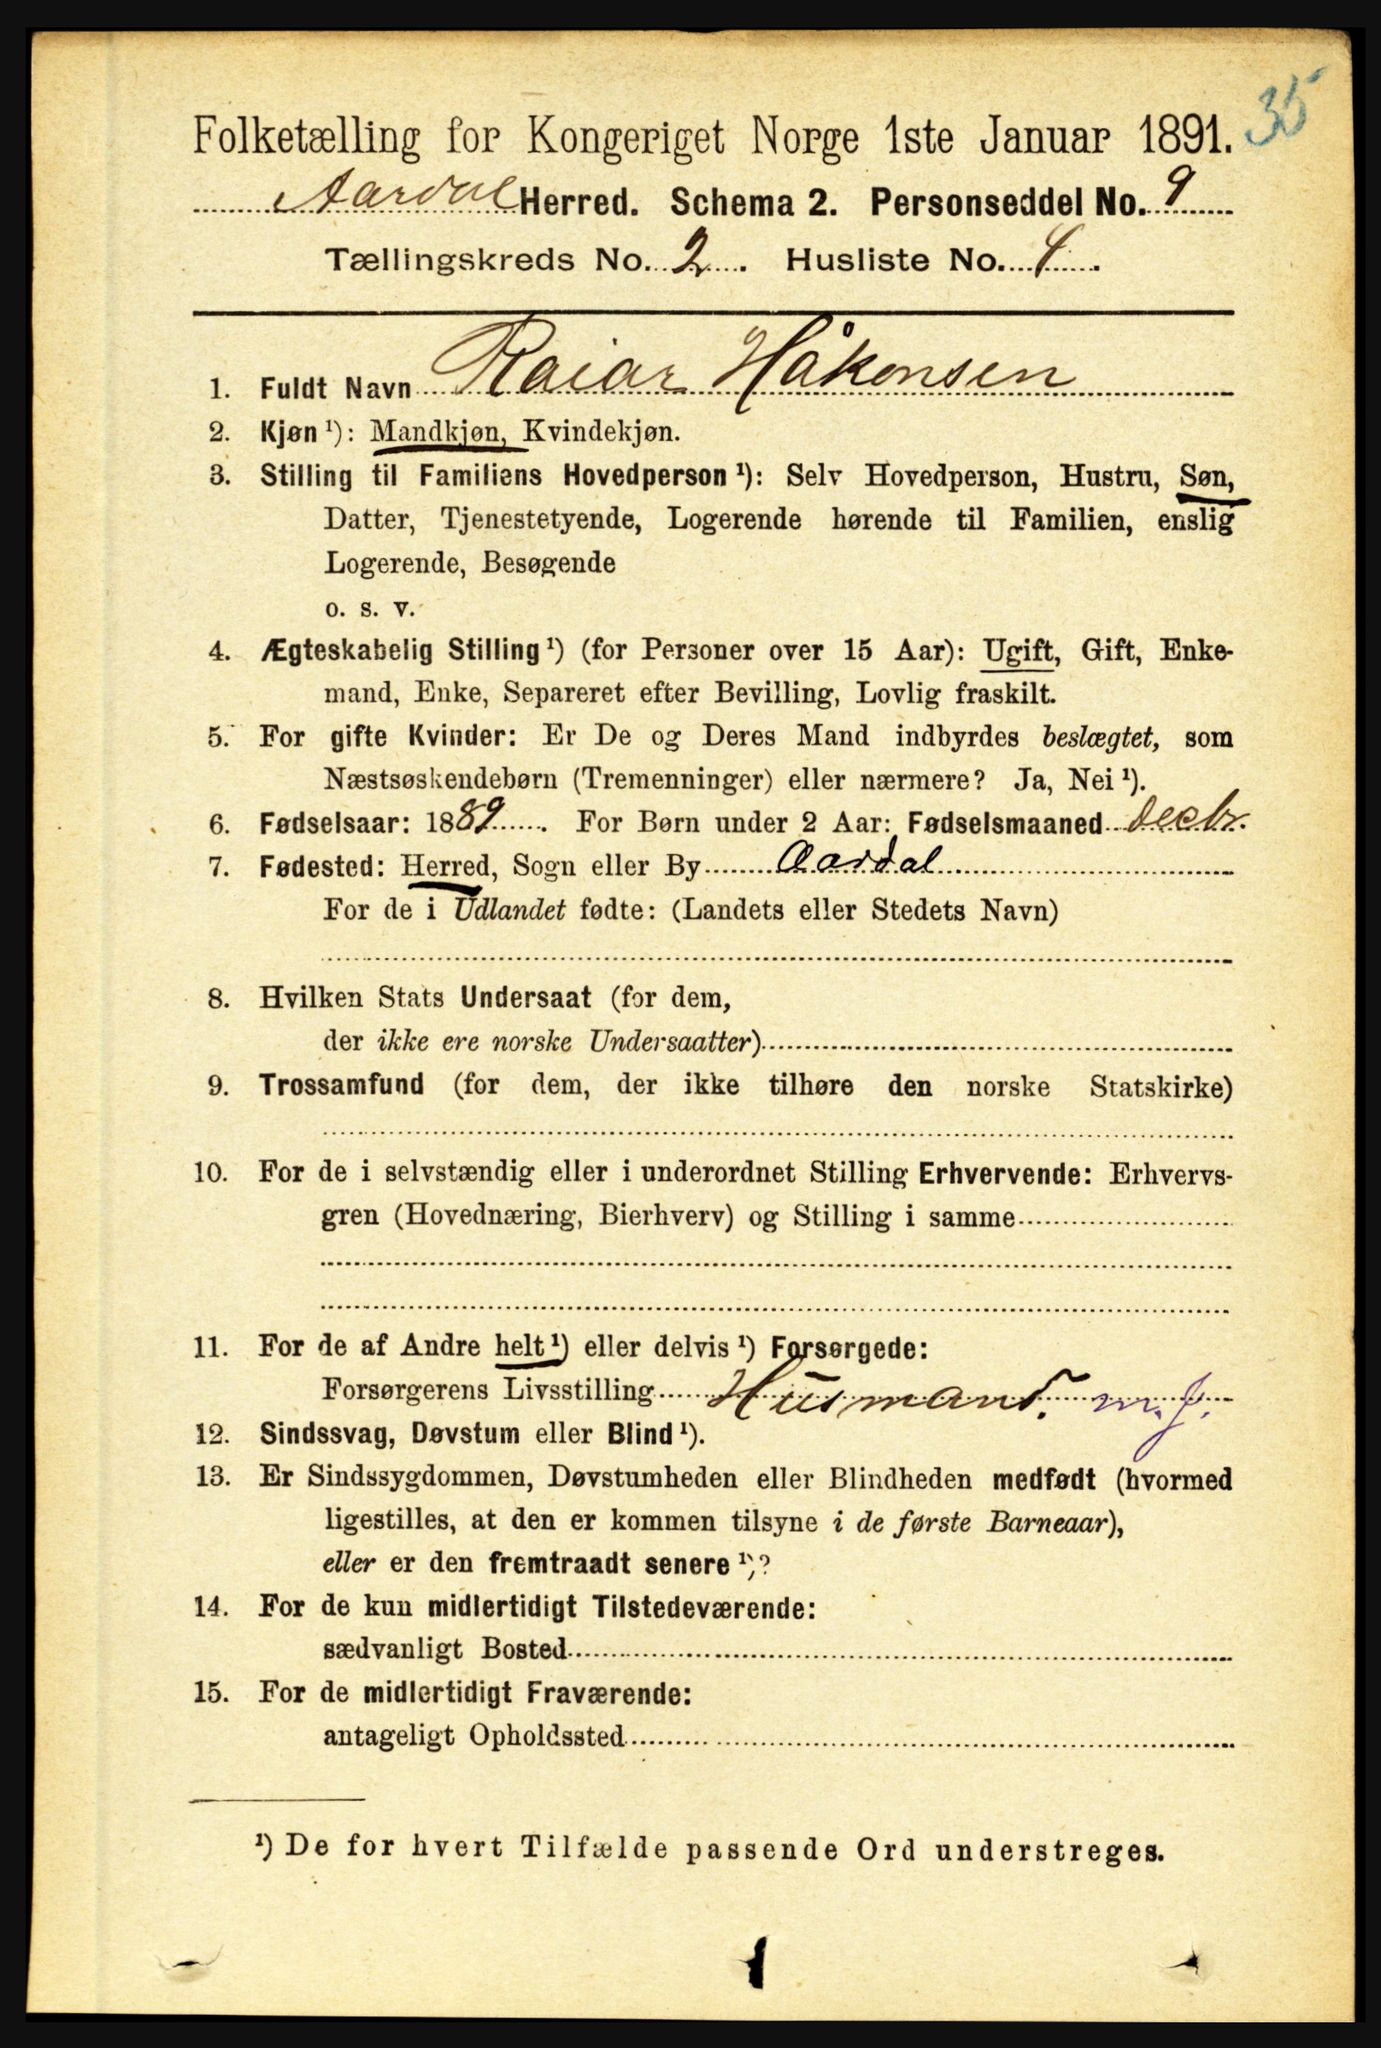 35
Folketælling for Kongeriget Norge 1ste Januar 1891.
Aardal Herred. Schema 2. Personseddel No. 9
Tællingskreds No. 2. Husliste No. 4.
1. Fuldt Navn Raiar Håkonsen
2. Kjøn ¹): Mandkjøn, Kvindekjøn.
3. Stilling til Familiens Hovedperson ¹): Selv Hovedperson, Hustru, Søn,
Datter, Tjenestetyende, Logerende hørende til Familien, enslig
Logerende, Besøgende
o. s. v.
4. Ægteskabelig Stilling ¹) (for Personer over 15 Aar): Ugift, Gift, Enke-
mand, Enke, Separeret efter Bevilling, Lovlig fraskilt.
5. For gifte Kvinder: Er De og Deres Mand indbyrdes beslægtet, som
Næstsøskendebørn (Tremenninger) eller nærmere? Ja, Nei ¹).
6. Fødselsaar: 1889. For Børn under 2 Aar: Fødselsmaaned decbr.
7. Fødested: Herred, Sogn eller By Aardal
For de i Udlandet fødte: (Landets eller Stedets Navn)
8. Hvilken Stats Undersaat (for dem,
der ikke ere norske Undersaatter)
9. Trossamfund (for dem, der ikke tilhøre den norske Statskirke)
10. For de i selvstændig eller i underordnet Stilling Erhvervende: Erhvervs-
gren (Hovednæring, Bierhverv) og Stilling i samme
11. For de af Andre helt ¹) eller delvis ¹) Forsørgede:
Forsørgerens Livsstilling Husmand. m.j.
12. Sindssvag, Døvstum eller Blind ¹).
13. Er Sindssygdommen, Døvstumheden eller Blindheden medfødt (hvormed
ligestilles, at den er kommen tilsyne i de første Barneaar),
eller er den fremtraadt senere ¹)?
14. For de kun midlertidigt Tilstedeværende:
sædvanligt Bosted
15. For de midlertidigt Fraværende:
antageligt Opholdssted
¹) De for hvert Tilfælde passende Ord understreges.